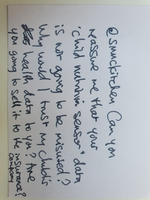 @smrtkitchen Can you
reassure me that your
'child nutrition sensor' data
is not going to be misused?
Why would I trust my child's
health data to you? Are
you going to sell it to the insurance
company